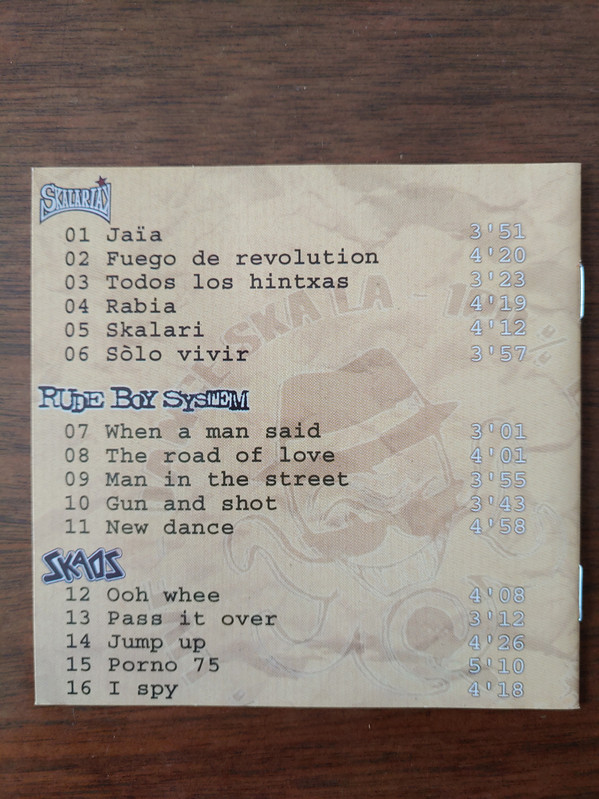 SKALARIAK
01 Jaïa 3'51
02 Fuego de revolution 4'20
03 Todos los hintxas 3'23
04 Rabia 4'19
05 Skalari 4'12
06 Sòlo vivir 3'57
RUDE BOY SYSTEM
07 When a man said 3'01
08 The road of love 4'01
09 Man in the street 3'55
10 Gun and shot 3'43
11 New dance 4'58
SKAOS
12 Ooh whee 4'08
13 Pass it over 3'12
14 Jump up 4'26
15 Porno 75 5'10
16 I spy 4'18